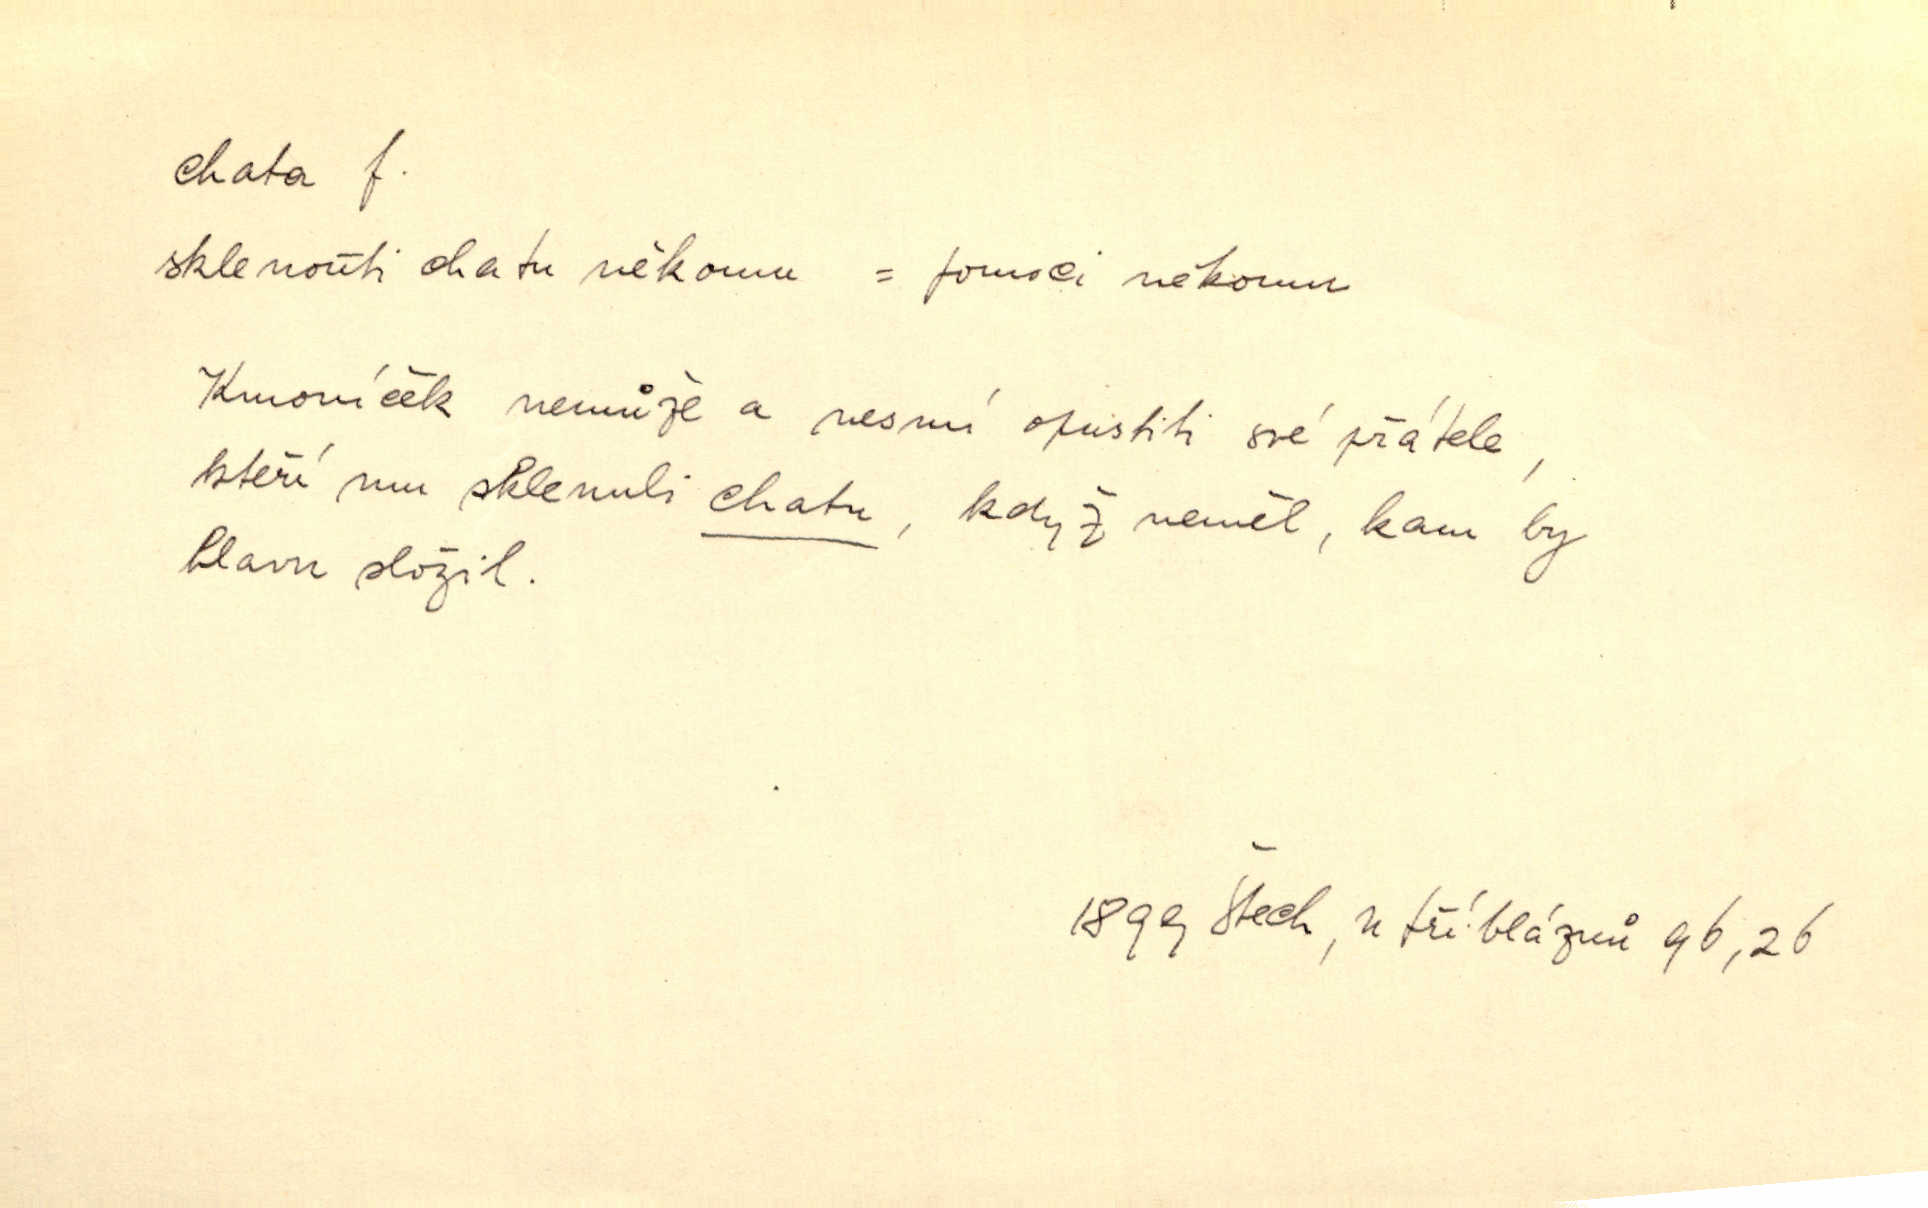 chata f.
sklenouti chatu někomu = pomoci někomu
Kmoníček nemůže a nesmí opustiti své přátele,
kteří mu sklenuli chatu, když neměl, kam by
hlavu složil.
1899 Štech, U tří bláznů 96, 26